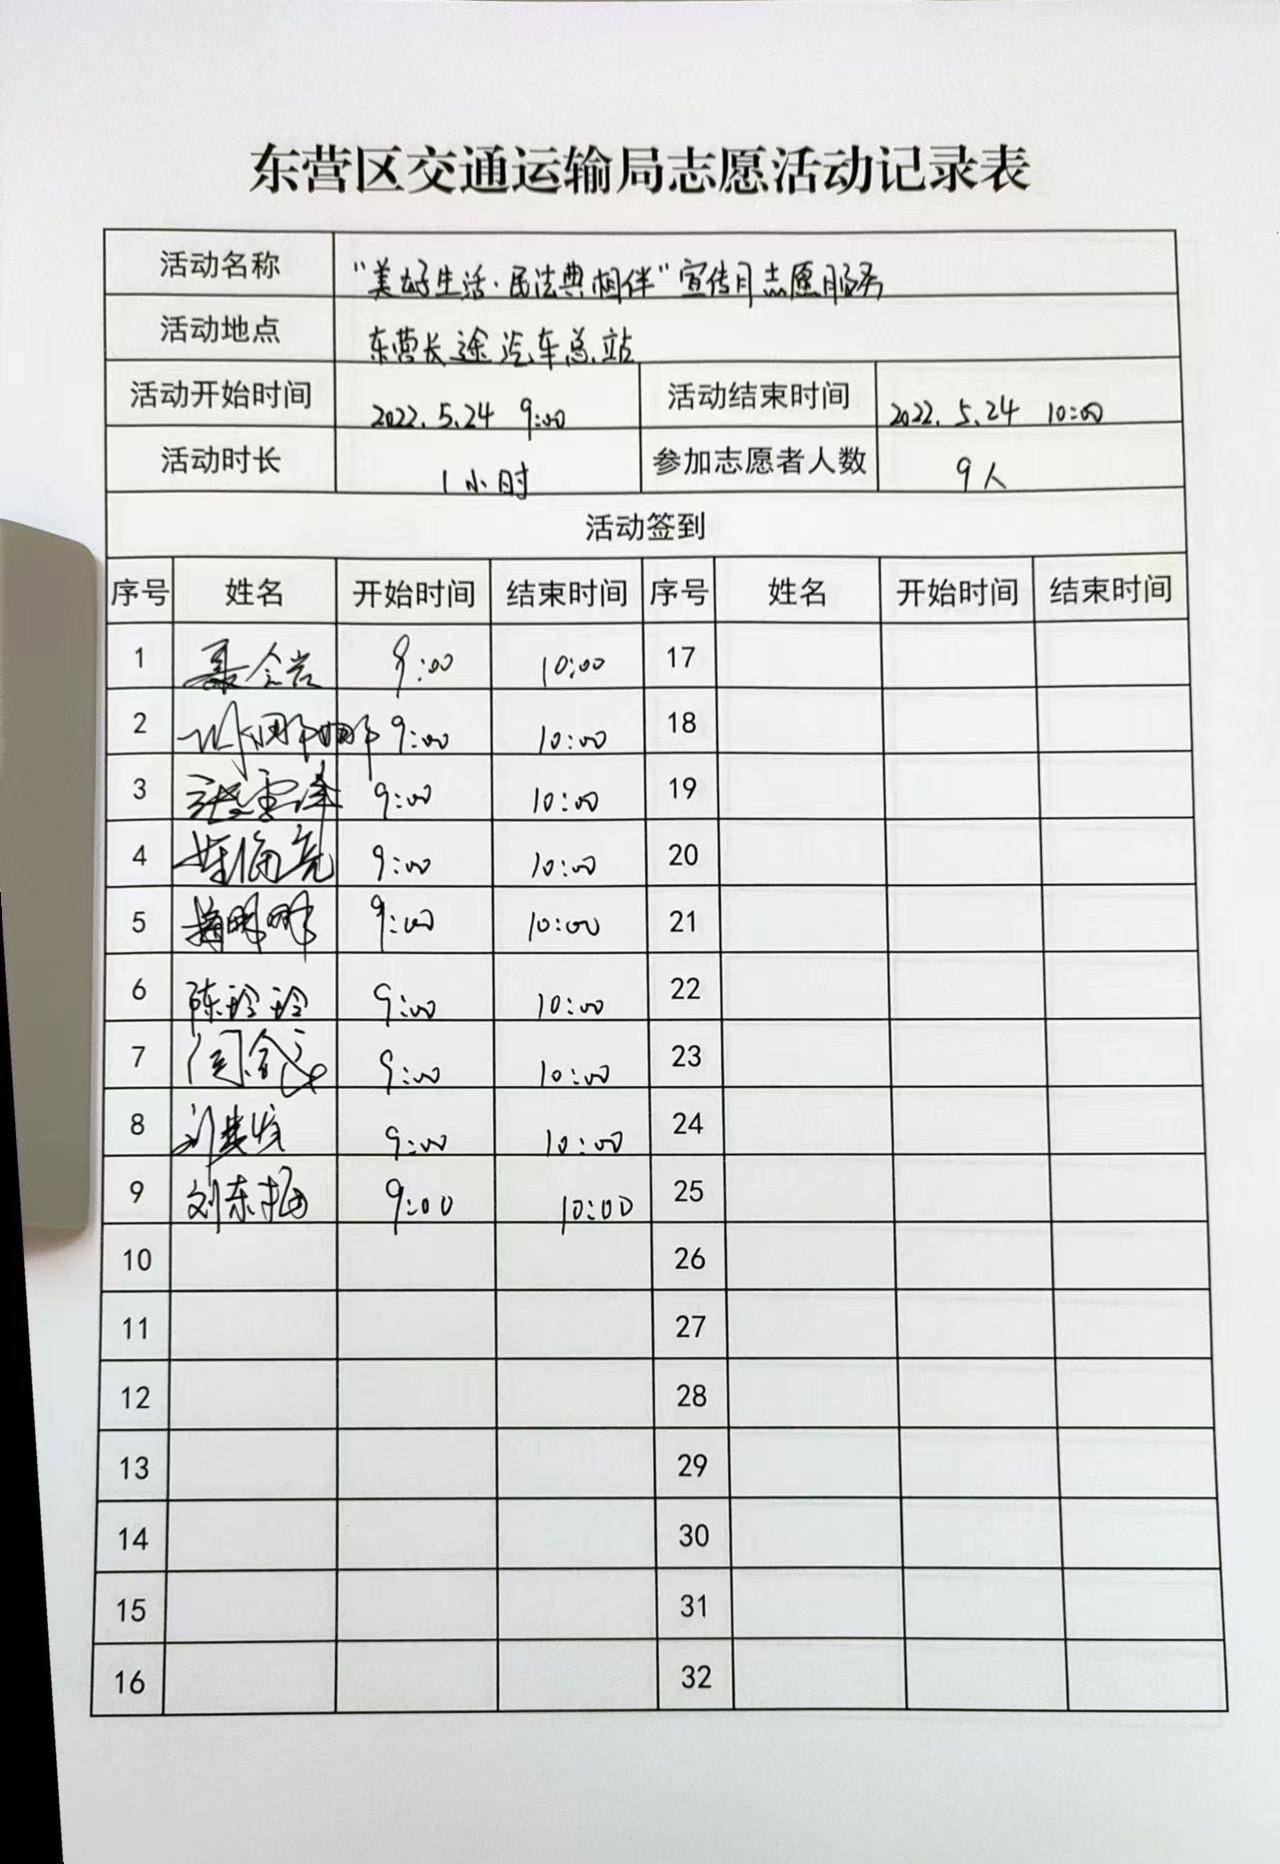 东营区交通运输局志愿活动记录表
活动名称 “美好生活·民法典相伴”宣传月志愿服务
活动地点 东营长途汽车总站
活动开始时间 2022.5.24 9:00 活动结束时间 2022.5.24 10:00
活动时长 1小时 参加志愿者人数 9人
活动签到
序号 姓名 开始时间 结束时间 序号 姓名 开始时间 结束时间
1 9:00 10:00 17
2 9:00 10:00 18
3 9:00 10:00 19
4 9:00 10:00 20
5 9:00 10:00 21
6 陈玲玲 9:00 10:00 22
7 9:00 10:00 23
8 9:00 10:00 24
9 刘东梅 9:00 10:00 25
10 26
11 27
12 28
13 29
14 30
15 31
16 32